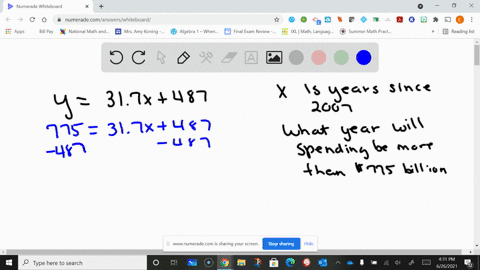 Numerade Whiteboard
numerade.com/answers/whiteboard/
Apps
Bill Pay
National Math and...
Mrs. Amy Koning -...
Algebra 1 - Wheneve...
Final Exam Review -...
IXL | Math, Language...
Summer Math Practi...
Reading list
y = 31.7x + 487
775 = 31.7x + 487
-487 - 487
X is years since
2007
What year will
spending be more
than $775 billion
www.numerade.com is sharing your screen.
Stop sharing
Hide
Type here to search
4:31 PM
6/26/2021